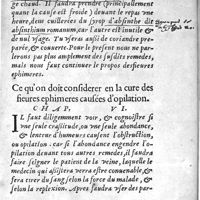 ge chaud. Il faudra prendre (principalement
quand la cause est froide) devant le repas vne
heure, deux cuillerées du syrop d'absinthe dit
absinthium romanum, car l'autre est inutile &
de nul vsage. Tu feras aussi de coriandre pre-
parée, & couuerte. Pour le present nous ne par-
lerons pas plus amplement des susdits remedes,
mais nous faut continuer le propos des fieures
ephimeres.
Ce qu'on doit considerer en la cure des
fieures ephimeres causées d'opilation.
CHAP. VI.
IL faut diligemment voir, & cognoistre si
vne seule crassitude, ou vne seule abondance,
& lenteur d'humeurs causent l'obstruction,
ou opilation: car si l'abondance induit l'opi-
lation deuant tous autres remedes, il faudra
faire seigner le patient de la veine, laquelle le
medecin qui assistera verra estre conuenable, &
fera tirer du sang selon la force du malade, &
selon la replexion. Apres faudra vser des par-